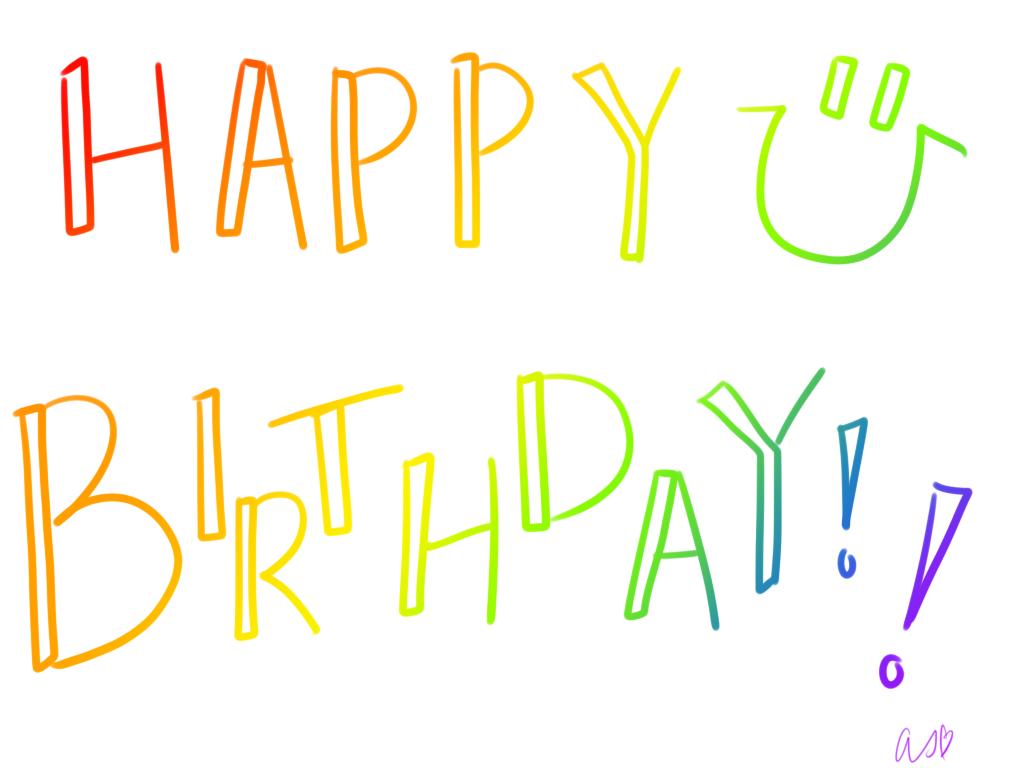 HAPPY
BIRTHDAY!!
as♡